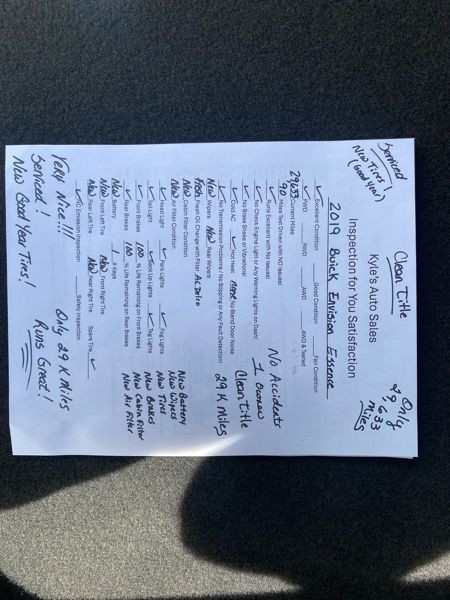 Serviced
New Tires!
(Good year)
Clean Title
Only
29,633
miles
Kyle's Auto Sales
Inspection for You Satisfaction
2019 Buick Envision Essence
✓ Excellent Condition Good Condition Fair Condition
FWD RWD AWD 4WD & Tested
29,633 Current Miles
90 Miles Test Driven with NO Issues!
✓ Runs Excellent with No Issues!
✓ No Check Engine Light or Any Warning Lights on Dash!
✓ No Brake Shake or Vibrations!
✓ Cold AC ✓ Hot Heat None No Blend Door Noise
✓ No Transmission Problems / No Slipping or Any Fault Detection!
No Accidents
1 Owner
Clean Title
29 K Miles
New Wipers New Rear Wipers
Fresh Fresh Oil Change with Filter AC Delco
New Cabin Filter Condition
New Air Filter Condition
✓ Head Light ✓ Park Lights ✓ Fog Lights
✓ Tail Light ✓ Back Up Lights ✓ Tag Lights
✓ Front Brakes 100 % Life Remaining on Front Brakes
✓ Rear Brakes 100 % Life Remaining on Rear Brakes
New Battery
New Wipers
New Tires
New Brakes
New Cabin Filter
New Air Filter
New Battery 1 # Keys
New Front Left Tire New Front Right Tire
New Rear Left Tire New Rear Right Tire Spare Tire ✓
✓ NC Emission Inspection Safety Inspection
Very Nice!!! Only 29 K Miles
Serviced! Runs Great!
New Good Year Tires!